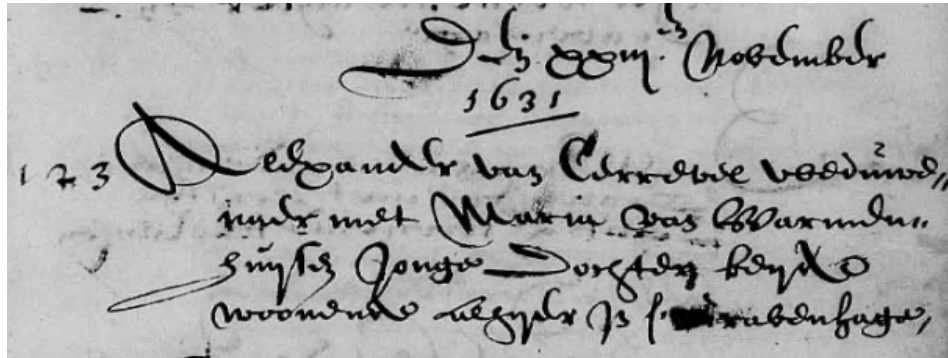 Den xxiij.en November
1631
123 Alexander van Cerrevel weduwe„
naer met Maria van Warmen„
huijsen Jonge Dochter beijde
woonende alhijer in s'Gravenhage,